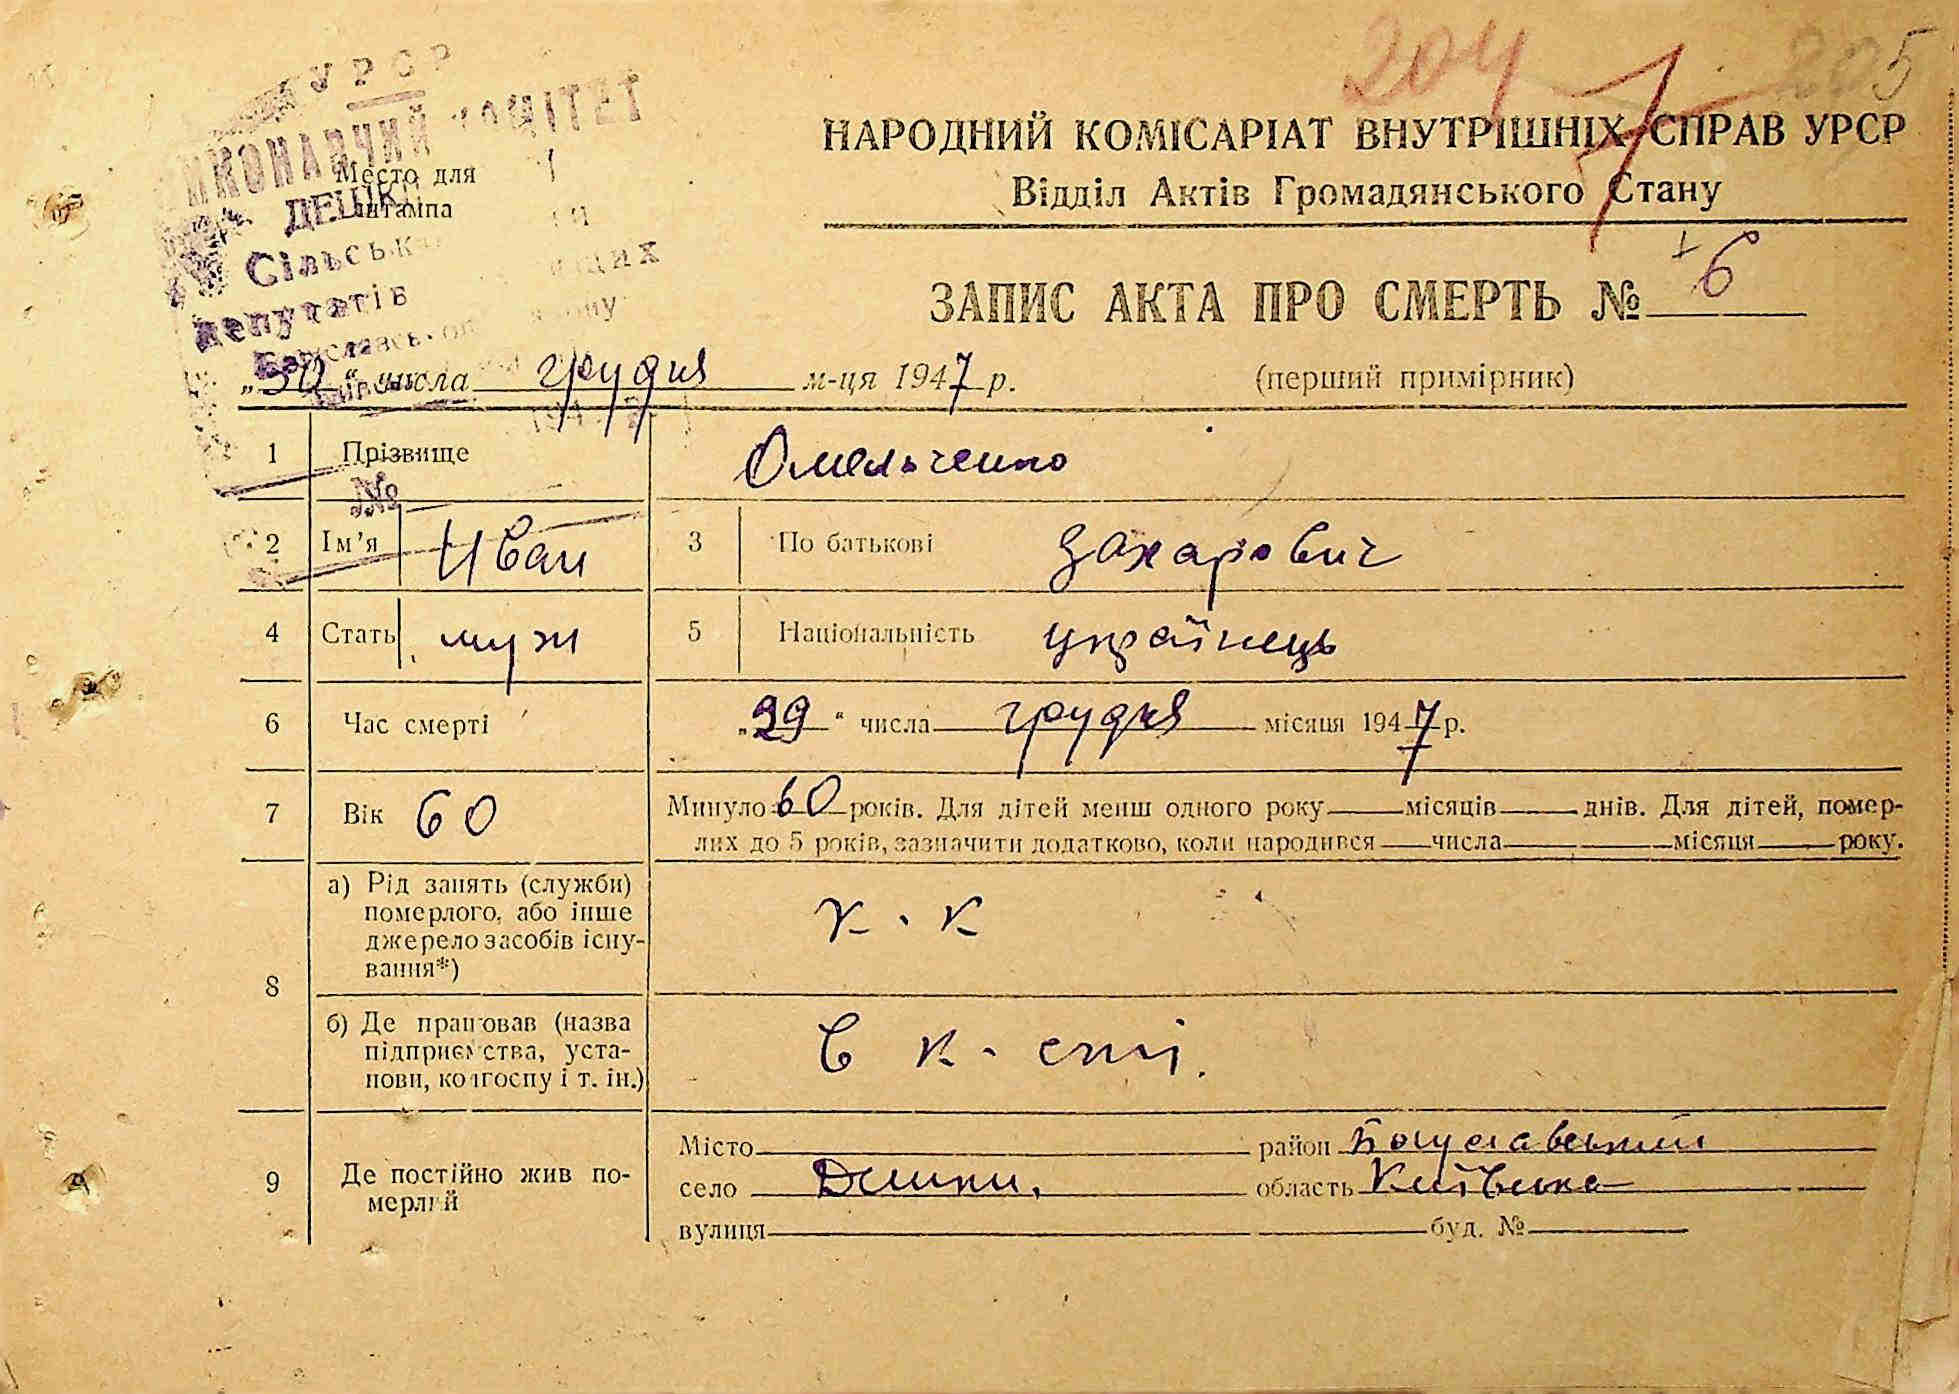 204 205
7
УРСР
ВИКОНАВЧИЙ КОМІТЕТ
Место для
штампа
ДЕШКИ
Сільська
депутатів
№
НАРОДНИЙ КОМІСАРІАТ ВНУТРІШНІХ СПРАВ УРСР
Відділ Актів Громадянського Стану
ЗАПИС АКТА ПРО СМЕРТЬ № 6
„30“ числа грудня м-ця 1947 р.
(перший примірник)
1 Прізвище Омельченко
2 Ім’я Иван 3 По батькові Захарович
4 Стать муж 5 Національність українець
6 Час смерті „29“ числа грудня місяця 1947 р.
7 Вік 60 Минуло 60 років. Для дітей менш одного року місяців днів. Для дітей, помер-
лих до 5 років, зазначити додатково, коли народився числа місяця року.
8 а) Рід занять (служби)
померлого, або інше
джерело засобів існу-
вання*)
к. к
б) Де працював (назва
підприємства, уста-
нови, колгоспу і т. ін.)
в к-спі.
9 Де постійно жив по-
мерлий
Місто район Богуславський
село Дешки. область Київська
вулиця буд. №